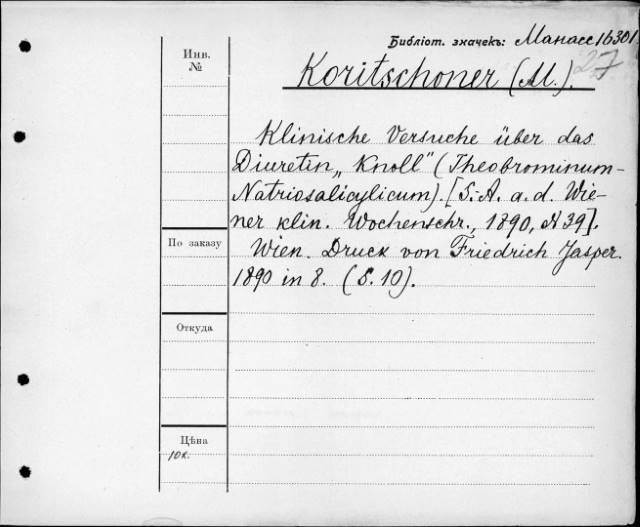 Библіот. значекъ: Манасс 16301
27
Инв.
№
Koritschoner (M.).
Klinische Versuche über das
Diuretin „Knoll“ (Theobrominum-
Natriosalicylicum). [S.-A. a. d. Wie-
ner klin. Wochenschr., 1890, N 39].
По заказу
Wien. Druck von Friedrich Jasper.
1890 in 8. (S. 10).
Откуда
Цѣна
10к.